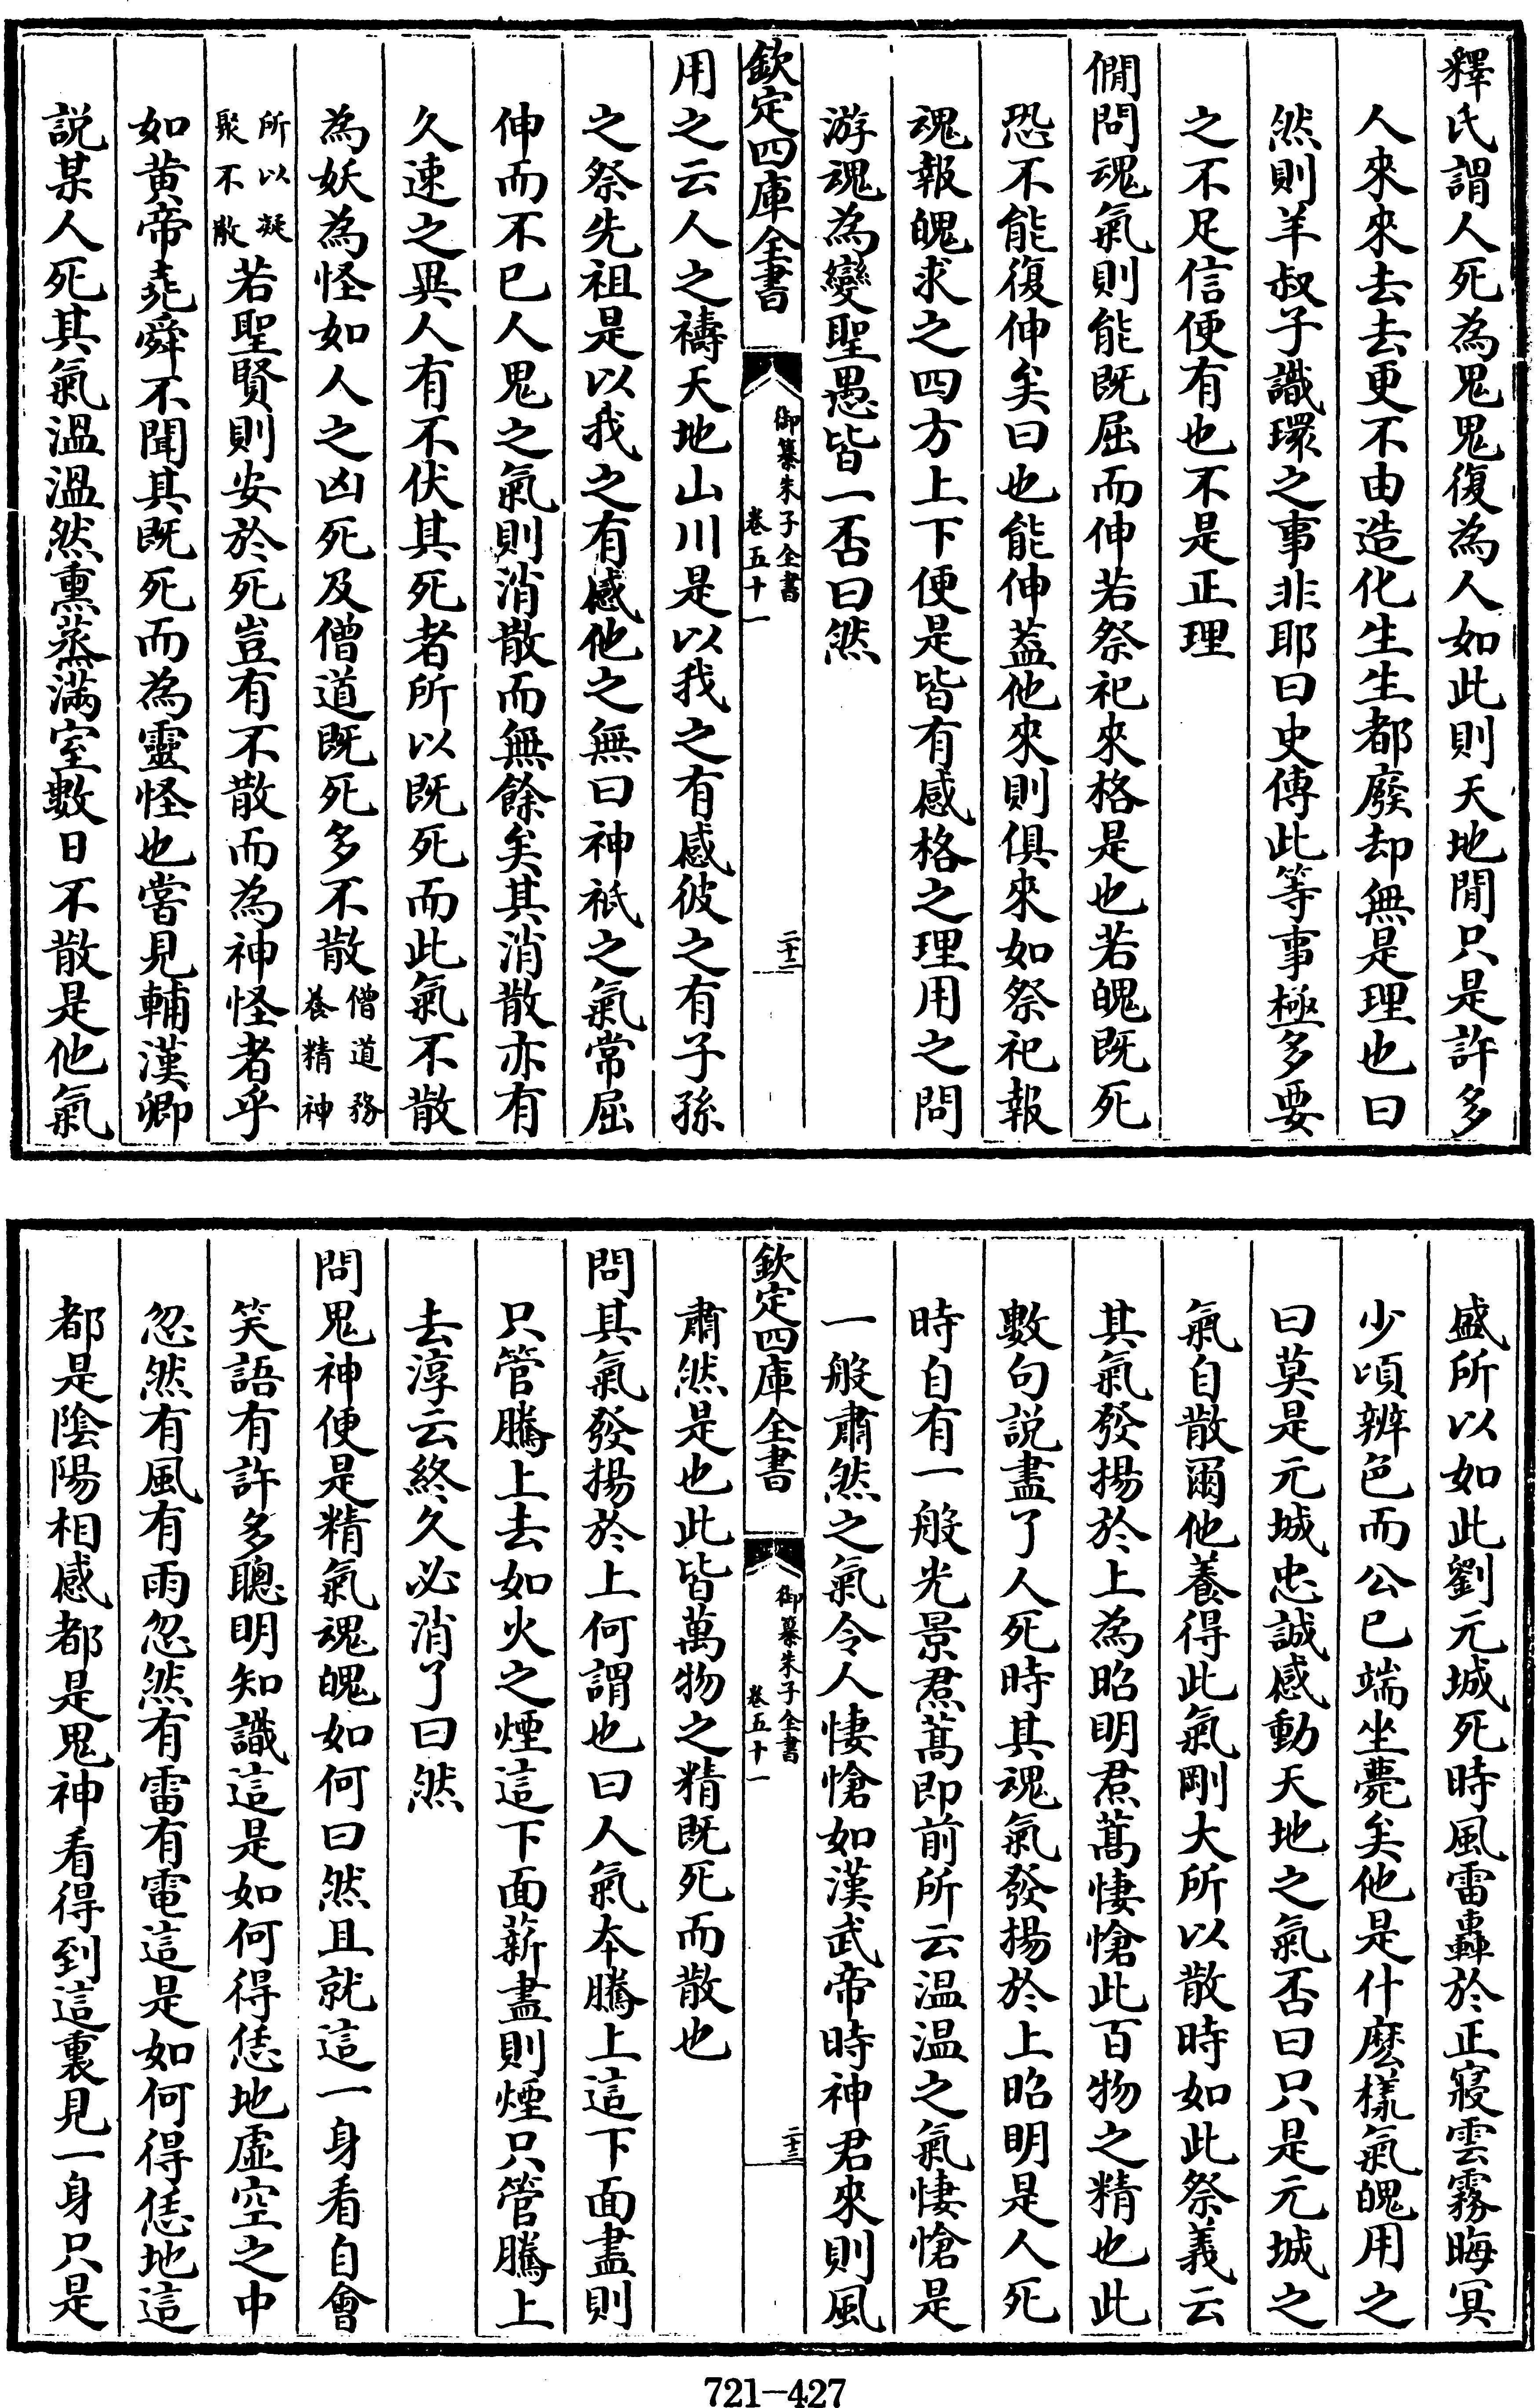 釋氏謂人死為鬼鬼復為人如此則天地閒只是許多
人來來去去更不由造化生生都廢却無是理也曰
然則羊叔子識環之事非耶曰史傳此等事極多要
之不足信便有也不是正理
僩問魂氣則能既屈而伸若祭祀來格是也若魄既死
恐不能復伸矣曰也能伸蓋他來則俱來如祭祀報
魂報魄求之四方上下便是皆有感格之理用之問
游魂為變聖愚皆一否曰然
欽定四庫全書
御纂朱子全書
卷五十一
二十二
用之云人之禱天地山川是以我之有感彼之有子孫
之祭先祖是以我之有感他之無曰神祇之氣常屈
伸而不已人鬼之氣則消散而無餘矣其消散亦有
久速之異人有不伏其死者所以既死而此氣不散
為妖為怪如人之凶死及僧道既死多不散僧道務養精神
所以凝聚不散若聖賢則安於死豈有不散而為神怪者乎
如黃帝堯舜不聞其既死而為靈怪也嘗見輔漢卿
説某人死其氣溫溫然熏蒸滿室數日不散是他氣
盛所以如此劉元城死時風雷轟於正寢雲霧晦冥
少頃辨色而公已端坐薨矣他是什麽樣氣魄用之
曰莫是元城忠誠感動天地之氣否曰只是元城之
氣自散爾他養得此氣剛大所以散時如此祭義云
其氣發揚於上為昭明焄蒿悽愴此百物之精也此
數句説盡了人死時其魂氣發揚於上昭明是人死
時自有一般光景焄蒿即前所云温温之氣悽愴是
一般肅然之氣令人悽愴如漢武帝時神君來則風
欽定四庫全書
御纂朱子全書
卷五十一
二十三
肅然是也此皆萬物之精既死而散也
問其氣發揚於上何謂也曰人氣本騰上這下面盡則
只管騰上去如火之煙這下面薪盡則煙只管騰上
去淳云終久必消了曰然
問鬼神便是精氣魂魄如何曰然且就這一身看自會
笑語有許多聰明知識這是如何得恁地虛空之中
忽然有風有雨忽然有雷有電這是如何得恁地這
都是陰陽相感都是鬼神看得到這裏見一身只是
721-427